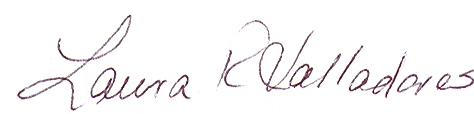 Laura R Valladares